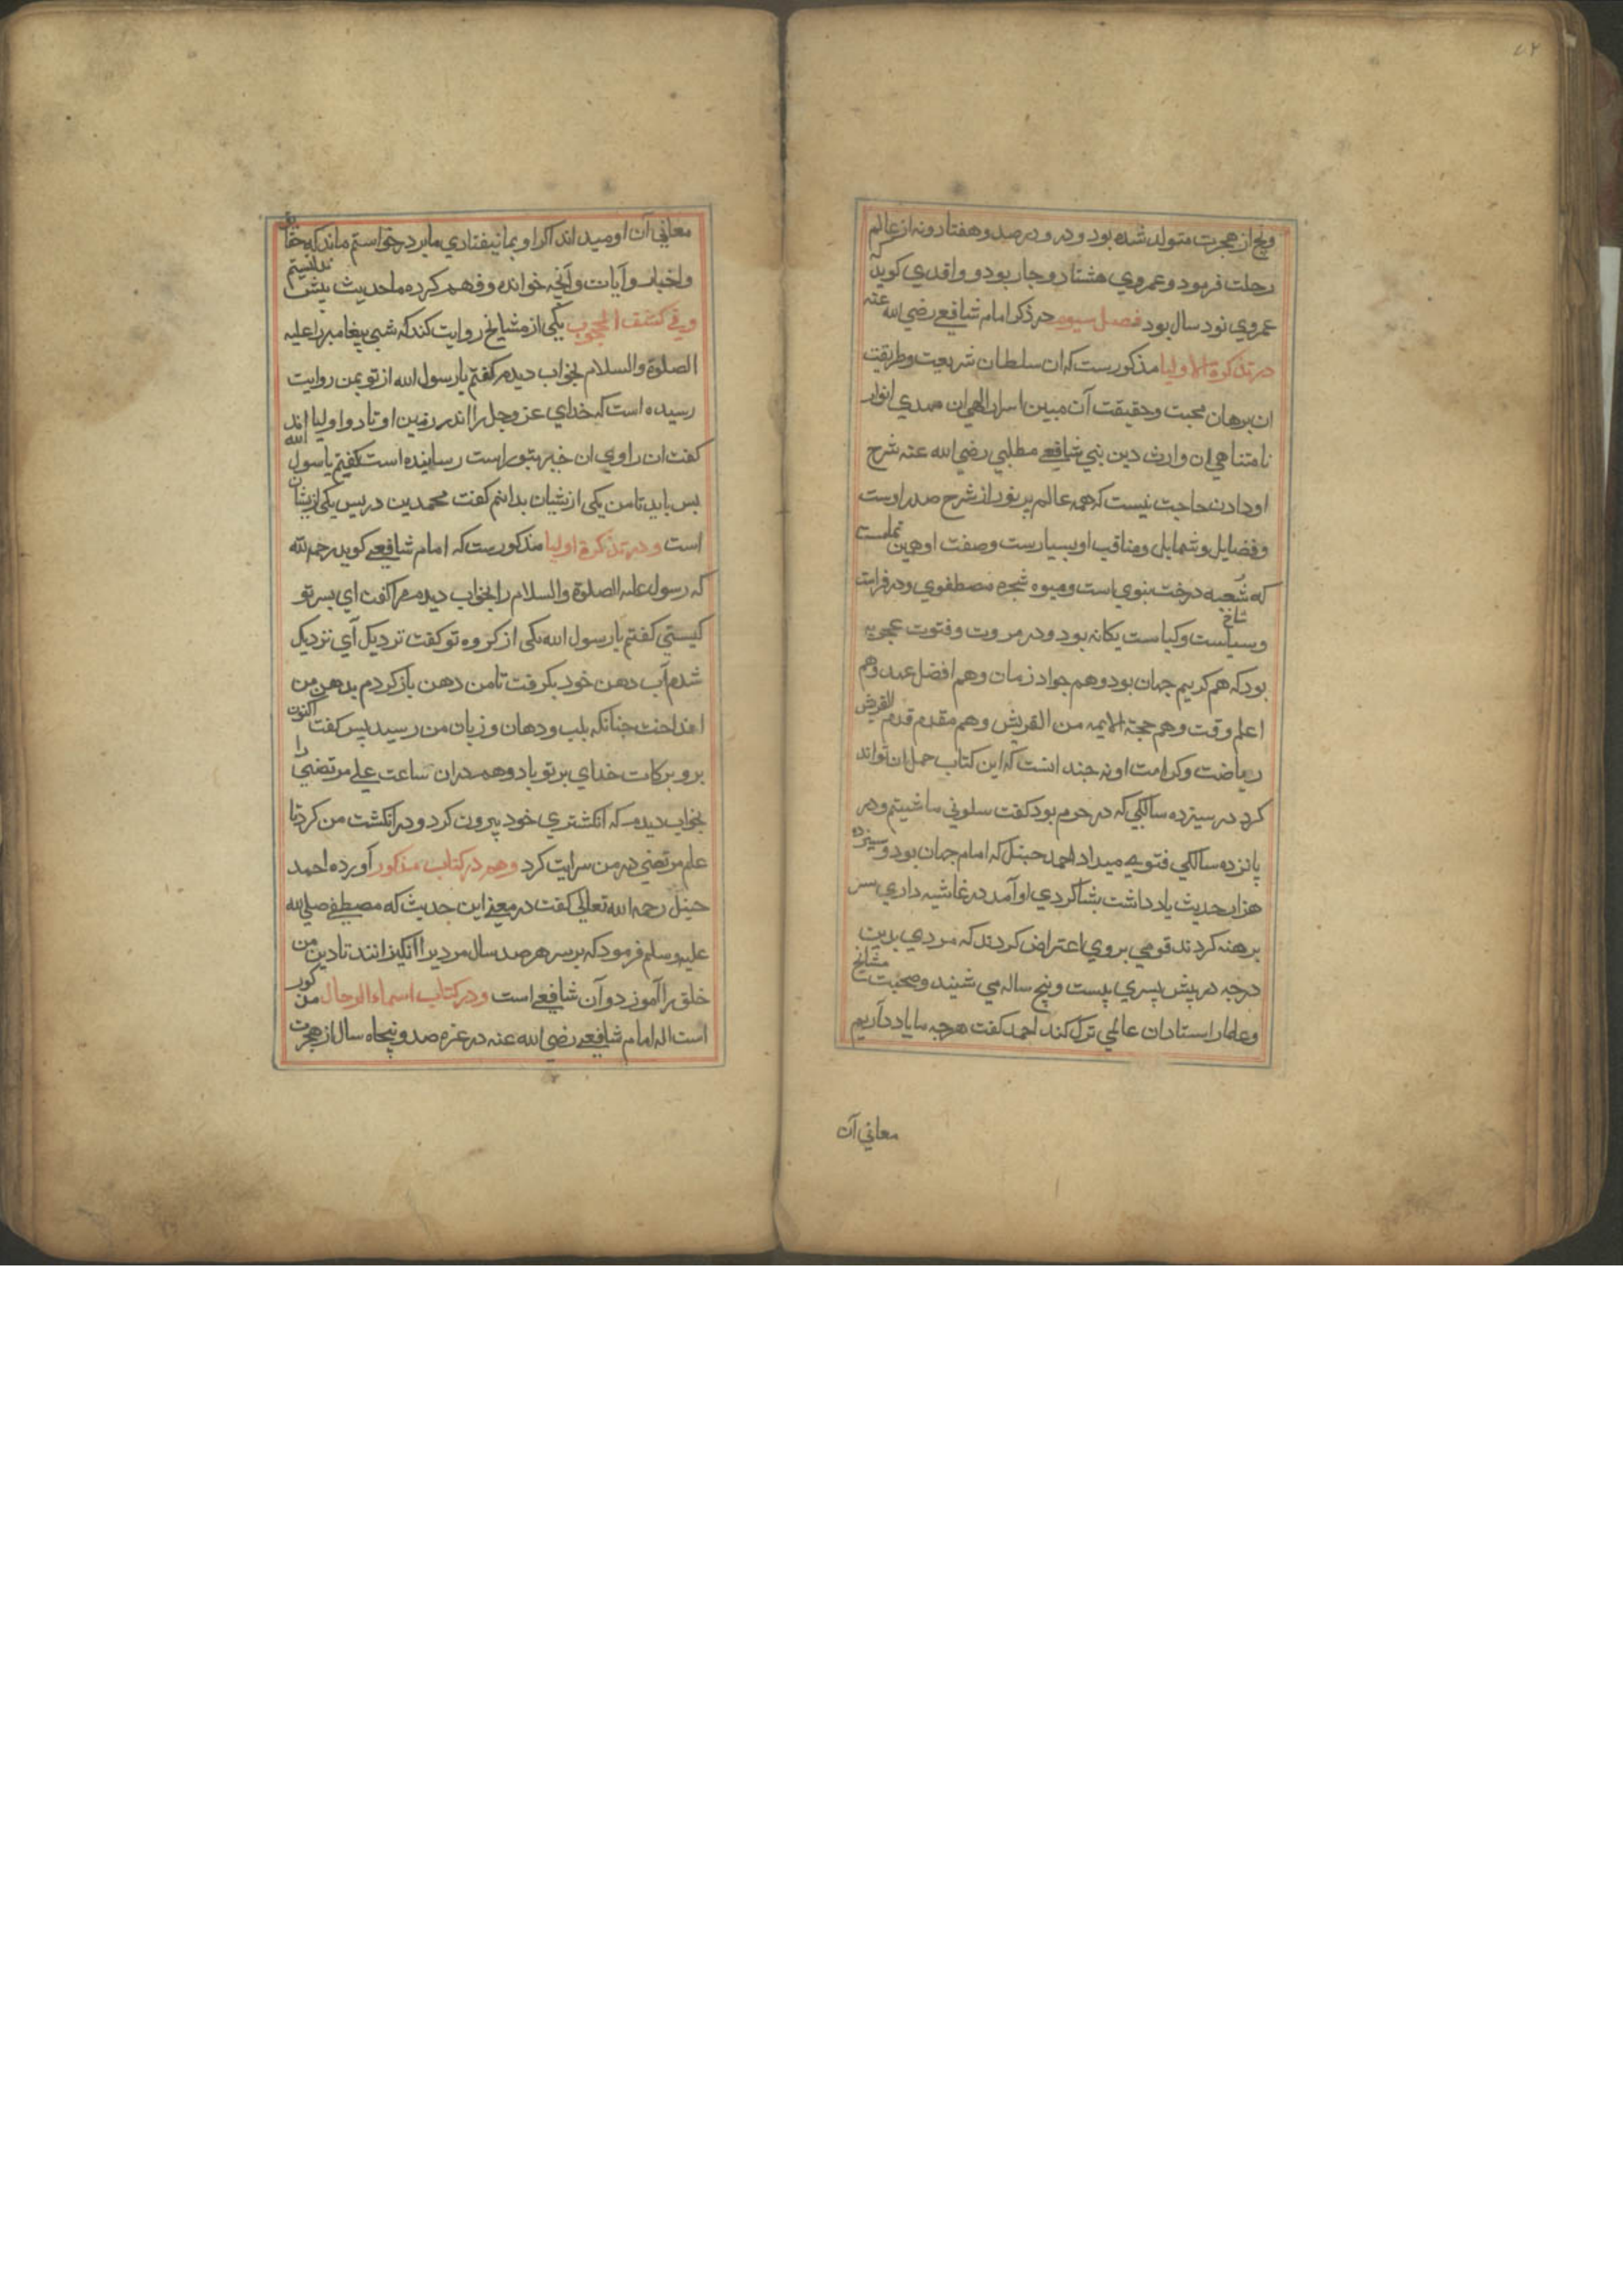 ۷۲
وپنج از هجرت متولد شده بود و در و در صد و هفتاد و نه از عالم
رحلت فرمود و عمر وی هشتاد و چار بود و واقدی کوید که
عمر وی نود سال بود فصل سیوم در ذکر امام شافعی رضی الله عنه
در تذکرة الاولیا مذکورست که ان سلطان شریعت و طریقت
ان برهان محبت و حقیقت آن مبین اسرار الهی ان مهدی انوار
نامتناهی ان وارث دین نبی شافعی مطلبی رضی الله عنه شرح
او دادن حاجت نیست که همه عالم پر نور از شرح صدر اوست
و فضایل و شمایل و مناقب او بسیارست وصفت او همین تمامست
که شعبه درخت نبوی است و میوه شجره مصطفوی و در فراست
شاخ
و سیاست و کیاست یکانه بود و در مروت و فتوت عجوبه
بود که هم کریم جهان بود و هم جواد زمان و هم افضل عهد و هم
اعلم وقت و هم حجة الایمه من القریش و هم مقدم قدم القریش
ریاضت و کرامت او نه چند انست که این کتاب حمل ان تواند
کرد در سیزده سالکی که در حرم بود کفت سلونی ما شیتم و در
پانزده سالکی فتوی میداد احمد حنبل که امام جهان بود و سیزده
هزار حدیث یاد داشت بشاکردی او آمد در غاشیه داری سر
برهنه کردند قومی بر وی اعتراض کردند که مردی بدین
درجه در پیش پسری بیست و پنج ساله می شیند و صحبت مشایخ
و علما را استادان عالمی ترک کند احمد کفت هرچه ما یاد داریم
معانی آن
معانی آن او میداند اکر او بما نیفتادی ما بر در خواستم ماند که حقایق
و اخبار و آیات و آنچه خوانده و فهم کرده ما حدیث بیش ندانستیم
و فی کشف المحجوب یکی از مشایخ روایت کند که شبی پیغامبر را علیه
الصلوة والسلام بخواب دیدم کفتم یا رسول الله از تو بمن روایت
رسیده است که خدای عز وجل را اندر زمین اوتاد و اولیا اند
کفت ان راوی ان خبر بتو راست رسانیده است کفتم یا رسول الله
بس باید تا من یکی ازیشان بدانم کفت محمد بن دریس یکی ازیشان
است و در تذکرة اولیا مذکورست که امام شافعی کوید رحمه الله
که رسول علیه الصلوة والسلام را بخواب دیدم مرا کفت ای پسر تو
کیستی کفتم یا رسول الله یکی از کروه تو کفت نزدیک آی نزدیک
شدم آب دهن خود بکرفت تا من دهن باز کردم بدهن من
انداخت چنانکه بلب و دهان و زبان من رسید پس کفت اکنون
برو برکات خدای بر تو باد و هم دران ساعت علی مرتضی را
بخواب دیدم که انکشتری خود بیرون کرد و در انکشت من کرد تا
علم مرتضی در من سرایت کرد و هم در کتاب مذکور آورده احمد
حنبل رحمه الله تعالی کفت در معنی این حدیث که مصطفی صلی الله
علیه وسلم فرمود که بر سر هر صد سال مردی را انکیزانند تا دین من
خلق را آموزد و آن شافعی است و در کتاب اسماء الرجال مذکور
است اله امام شافعی رضی الله عنه در غزه صد و پنجاه سال از هجرت